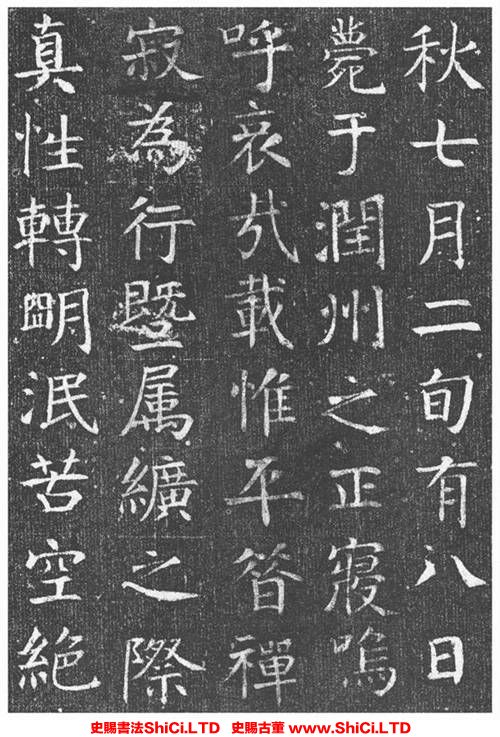 秋七月二旬有八日
薨于潤州之正寢嗚
呼哀哉載惟平昔禪
寂為行暨属纊之際
真性轉朙泯苦空絕
史賜書法ShiCi.LTD 史賜古董 www.ShiCi.LTD